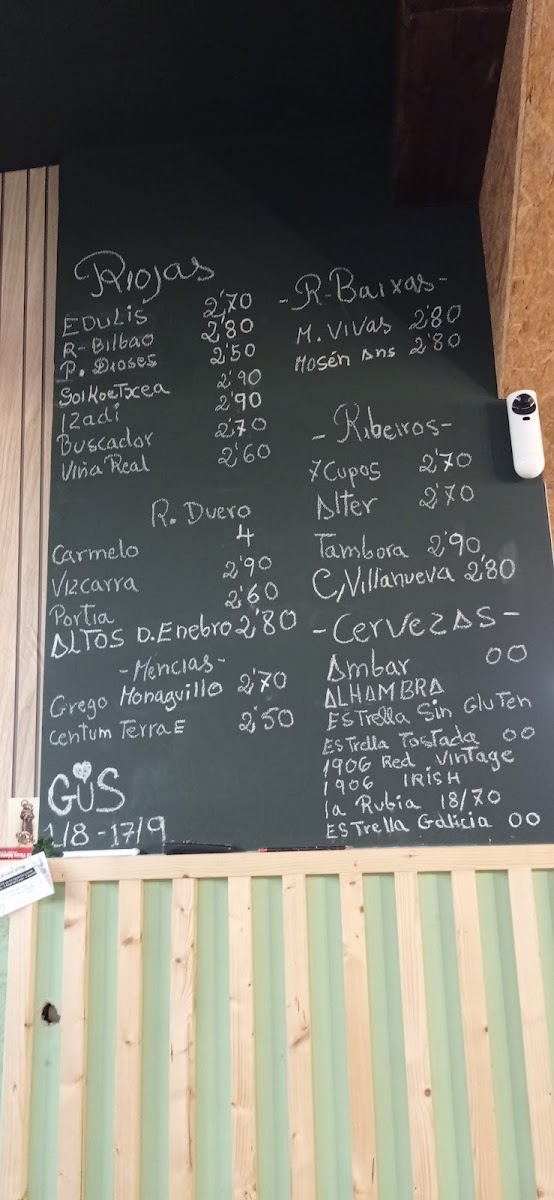 Riojas
EDULIS 2,70
R-Bilbao 2'80
P. Dioses 2'50
Solkoetxea 2'90
Izadi 2'90
Buscador 2'70
Viña Real 2'60
R. Duero
Carmelo 4
Vizcarra 2'90
Portia 2'60
ALTOS D. Enebro 2'80
-Mencias-
Grego Monaguillo 2'70
Centum Terrae 2'50
GUS
1/8-17/9
-R-Baixas-
M. Vivas 2'80
Mosén Ans 2'80
-Ribeiros-
7 Cupos 2'70
Alter 2'70
Tambora 2'90
C, Villanueva 2'80
-CERVEZAS-
Ambar 00
ALHAMBRA
ESTrella Sin Gluten
EsTrella Tostada 00
1906 Red Vintage
1906 IRISH
la Rubia 18/70
ESTrella Galicia 00